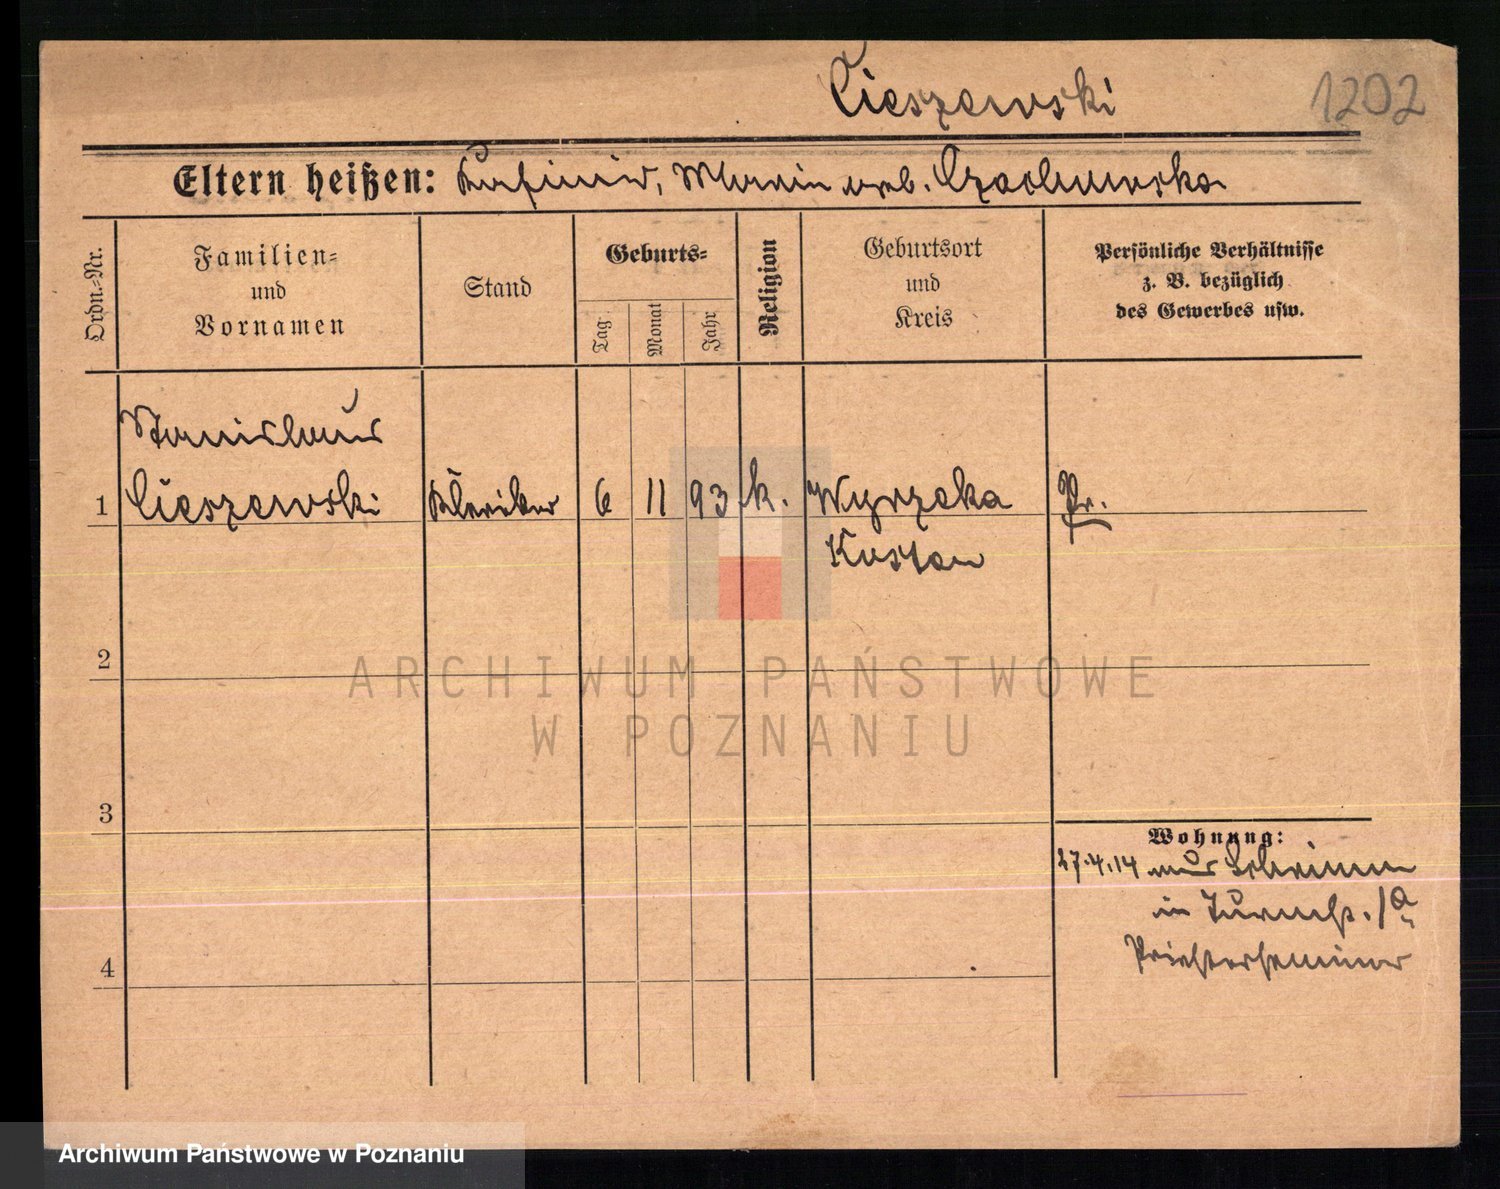 Cieszewski
1202
Eltern heißen: Kasimir, Maria geb. Czachowska
Ordn.-Nr.
Familien-
und
Vornamen
Stand
Geburts-
Tag
Monat
Jahr
Religion
Geburtsort
und
Kreis
Persönliche Verhältnisse
z. B. bezüglich
des Gewerbes usw.
Stanislaus
1 Cieszewski Kleriker 6 11 93 k. Wyrzeka Pr.
Kosten
2
ARCHIWUM PAŃSTWOWE
W POZNANIU
3
Wohnung:
27.4.14 aus Schrimm
in
Priesterseminar
4
Archiwum Państwowe w Poznaniu